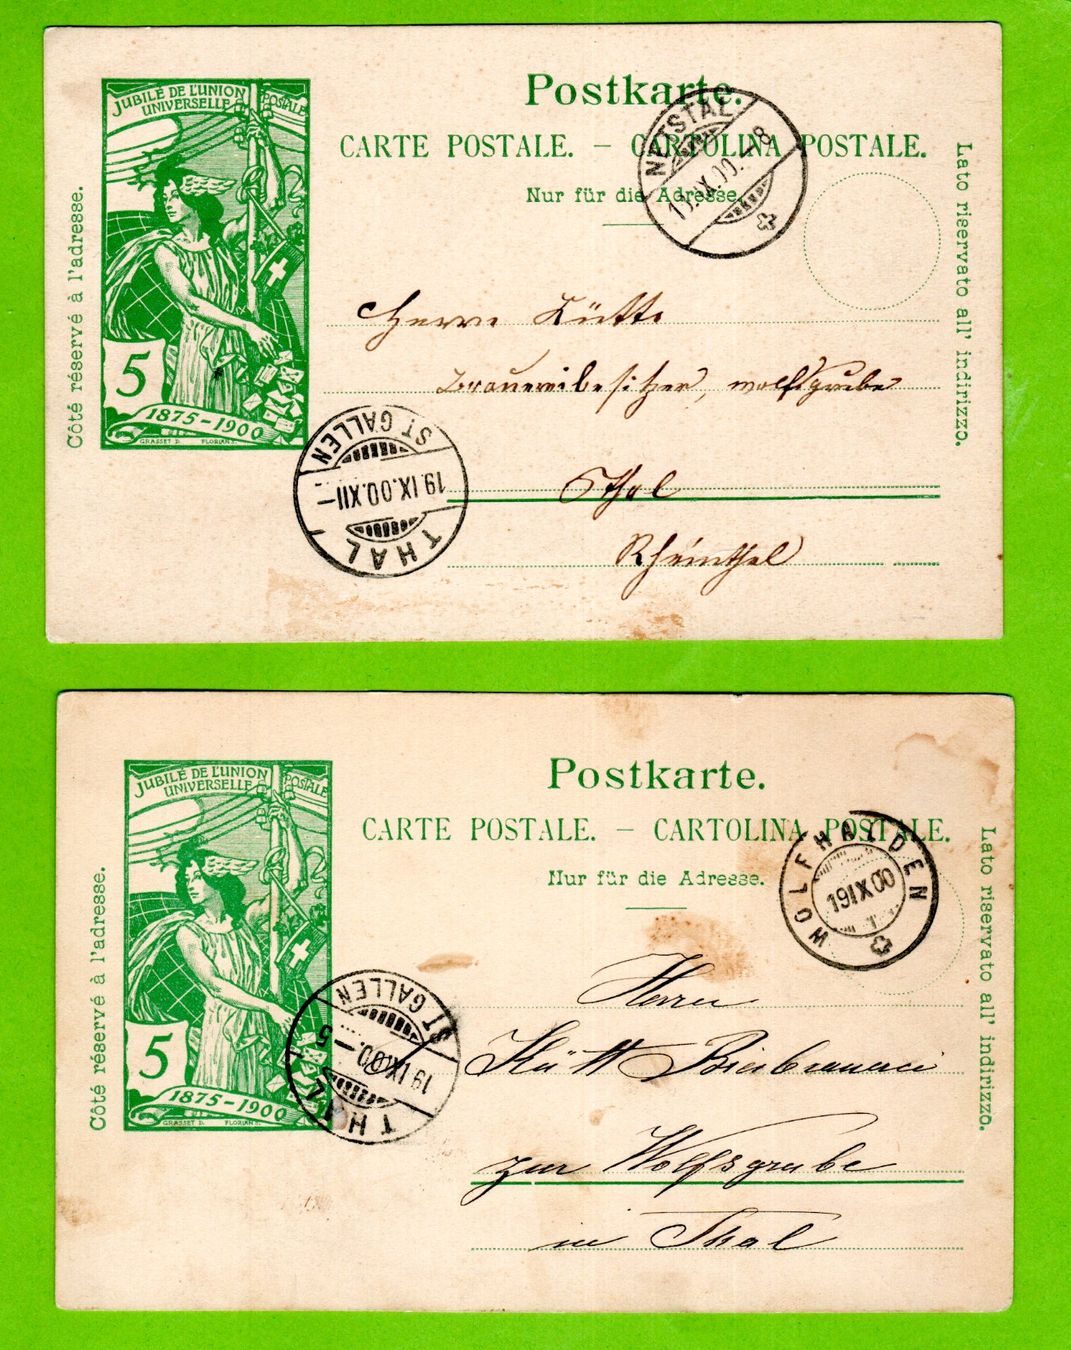 JUBILÉ DE L'UNION
UNIVERSELLE POSTALE
5
1875-1900
GRASSET D. FLORIAN S.
Côté réservé à l'adresse.
Postkarte.
CARTE POSTALE. — CARTOLINA POSTALE.
Nur für die Adresse.
NETSTAL
IX.00.-8
Lato riservato all' indirizzo.
Herrn
Brauereibesitzer, Wolfsgrube
Thal
Rheinthal
ST GALLEN
19.IX.00.XII-
THAL
JUBILÉ DE L'UNION
UNIVERSELLE POSTALE
5
1875-1900
GRASSET D. FLORIAN S.
Côté réservé à l'adresse.
Postkarte.
CARTE POSTALE. — CARTOLINA POSTALE.
Nur für die Adresse.
WOLFHALDEN
19 IX 00
Lato riservato all' indirizzo.
Herrn
zur Wolfsgrube
in Thal
ST GALLEN
19.IX.00.-5
THAL